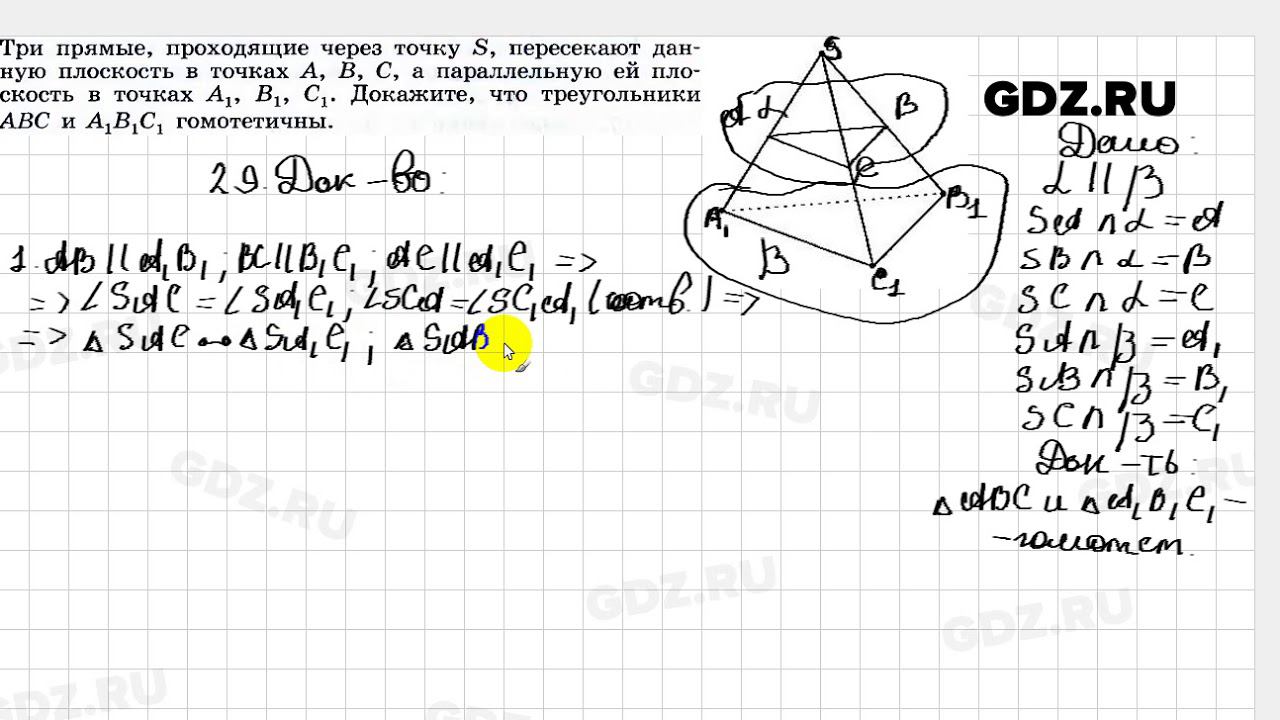 Три прямые, проходящие через точку S, пересекают дан-
ную плоскость в точках A, B, C, а параллельную ей пло-
скость в точках A₁, B₁, C₁. Докажите, что треугольники
ABC и A₁B₁C₁ гомотетичны.
29. Док-во:
1. AB || A₁B₁ ; BC || B₁C₁ ; AC || A₁C₁ =>
=> ∠SAC = ∠SA₁C₁ ; ∠SCA = ∠SC₁A₁ (соотв.) =>
=> △SAC ∾ △SA₁C₁ ; △SAB
S
A α
B
C
A₁
B₁
β
C₁
GDZ.RU
Дано:
α || β
SA ∩ α = A
SB ∩ α = B
SC ∩ α = C
SA ∩ β = A₁
SB ∩ β = B₁
SC ∩ β = C₁
Док-ть:
△ABC и △A₁B₁C₁ -
- гомотет.
GDZ.RU
GDZ.RU
GDZ.RU
GDZ.RU
GDZ.RU
GDZ.RU
GDZ.RU